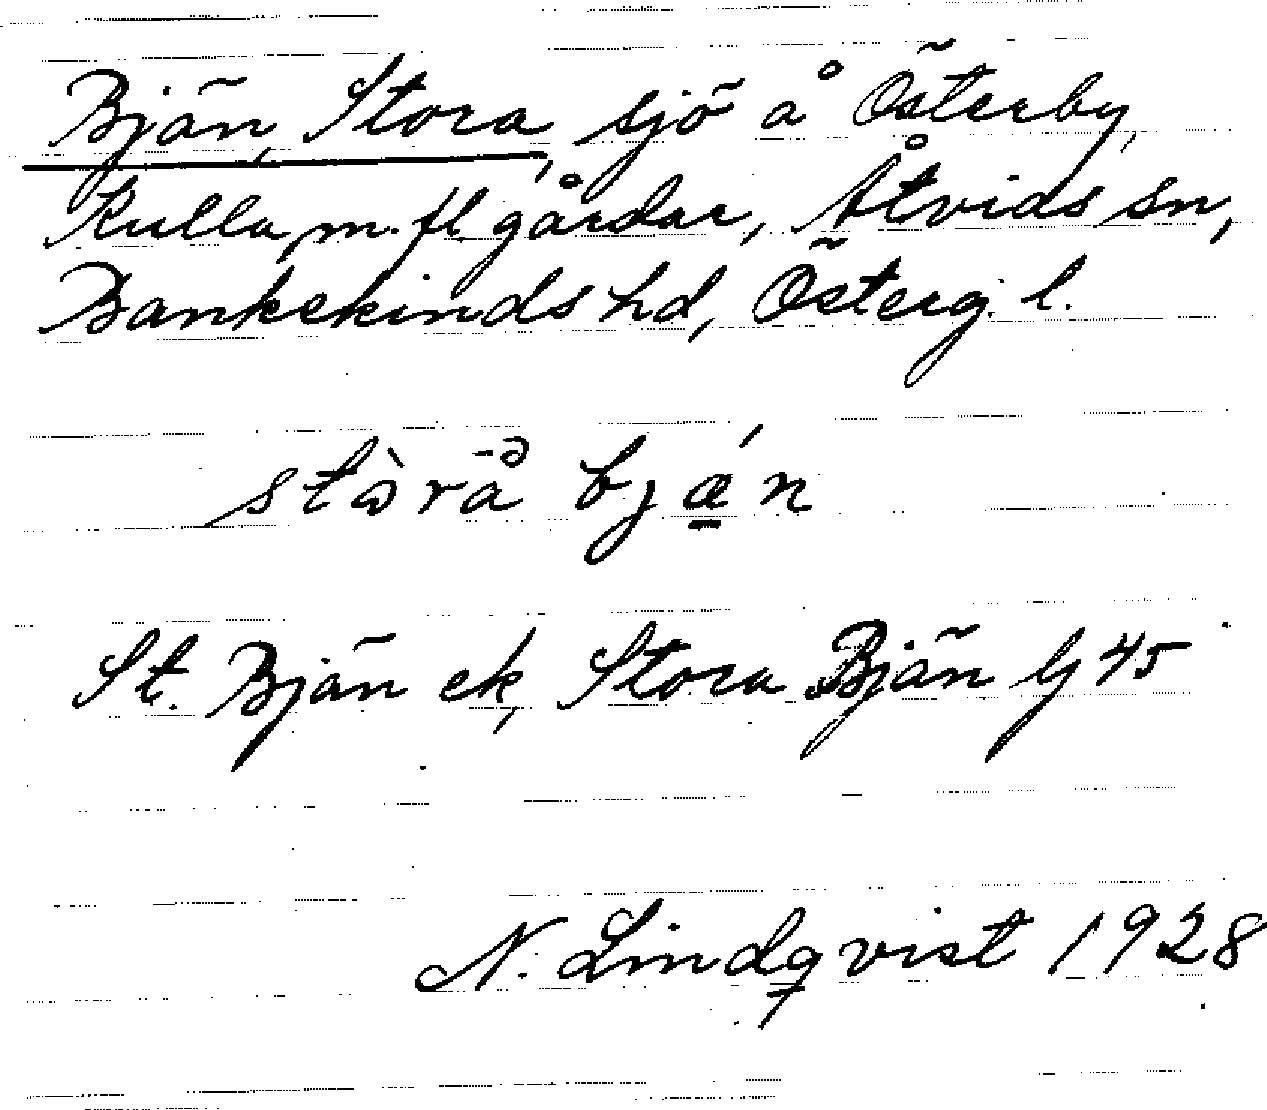 Bjän, Stora, sjö å Österby,
Kulla m. fl. gårdar, Åtvids sn,
Bankekinds hd, Österg. l.
bjæ´n
St. Bjän ek, Stora Bjän G 45
N. Lindqvist 1928